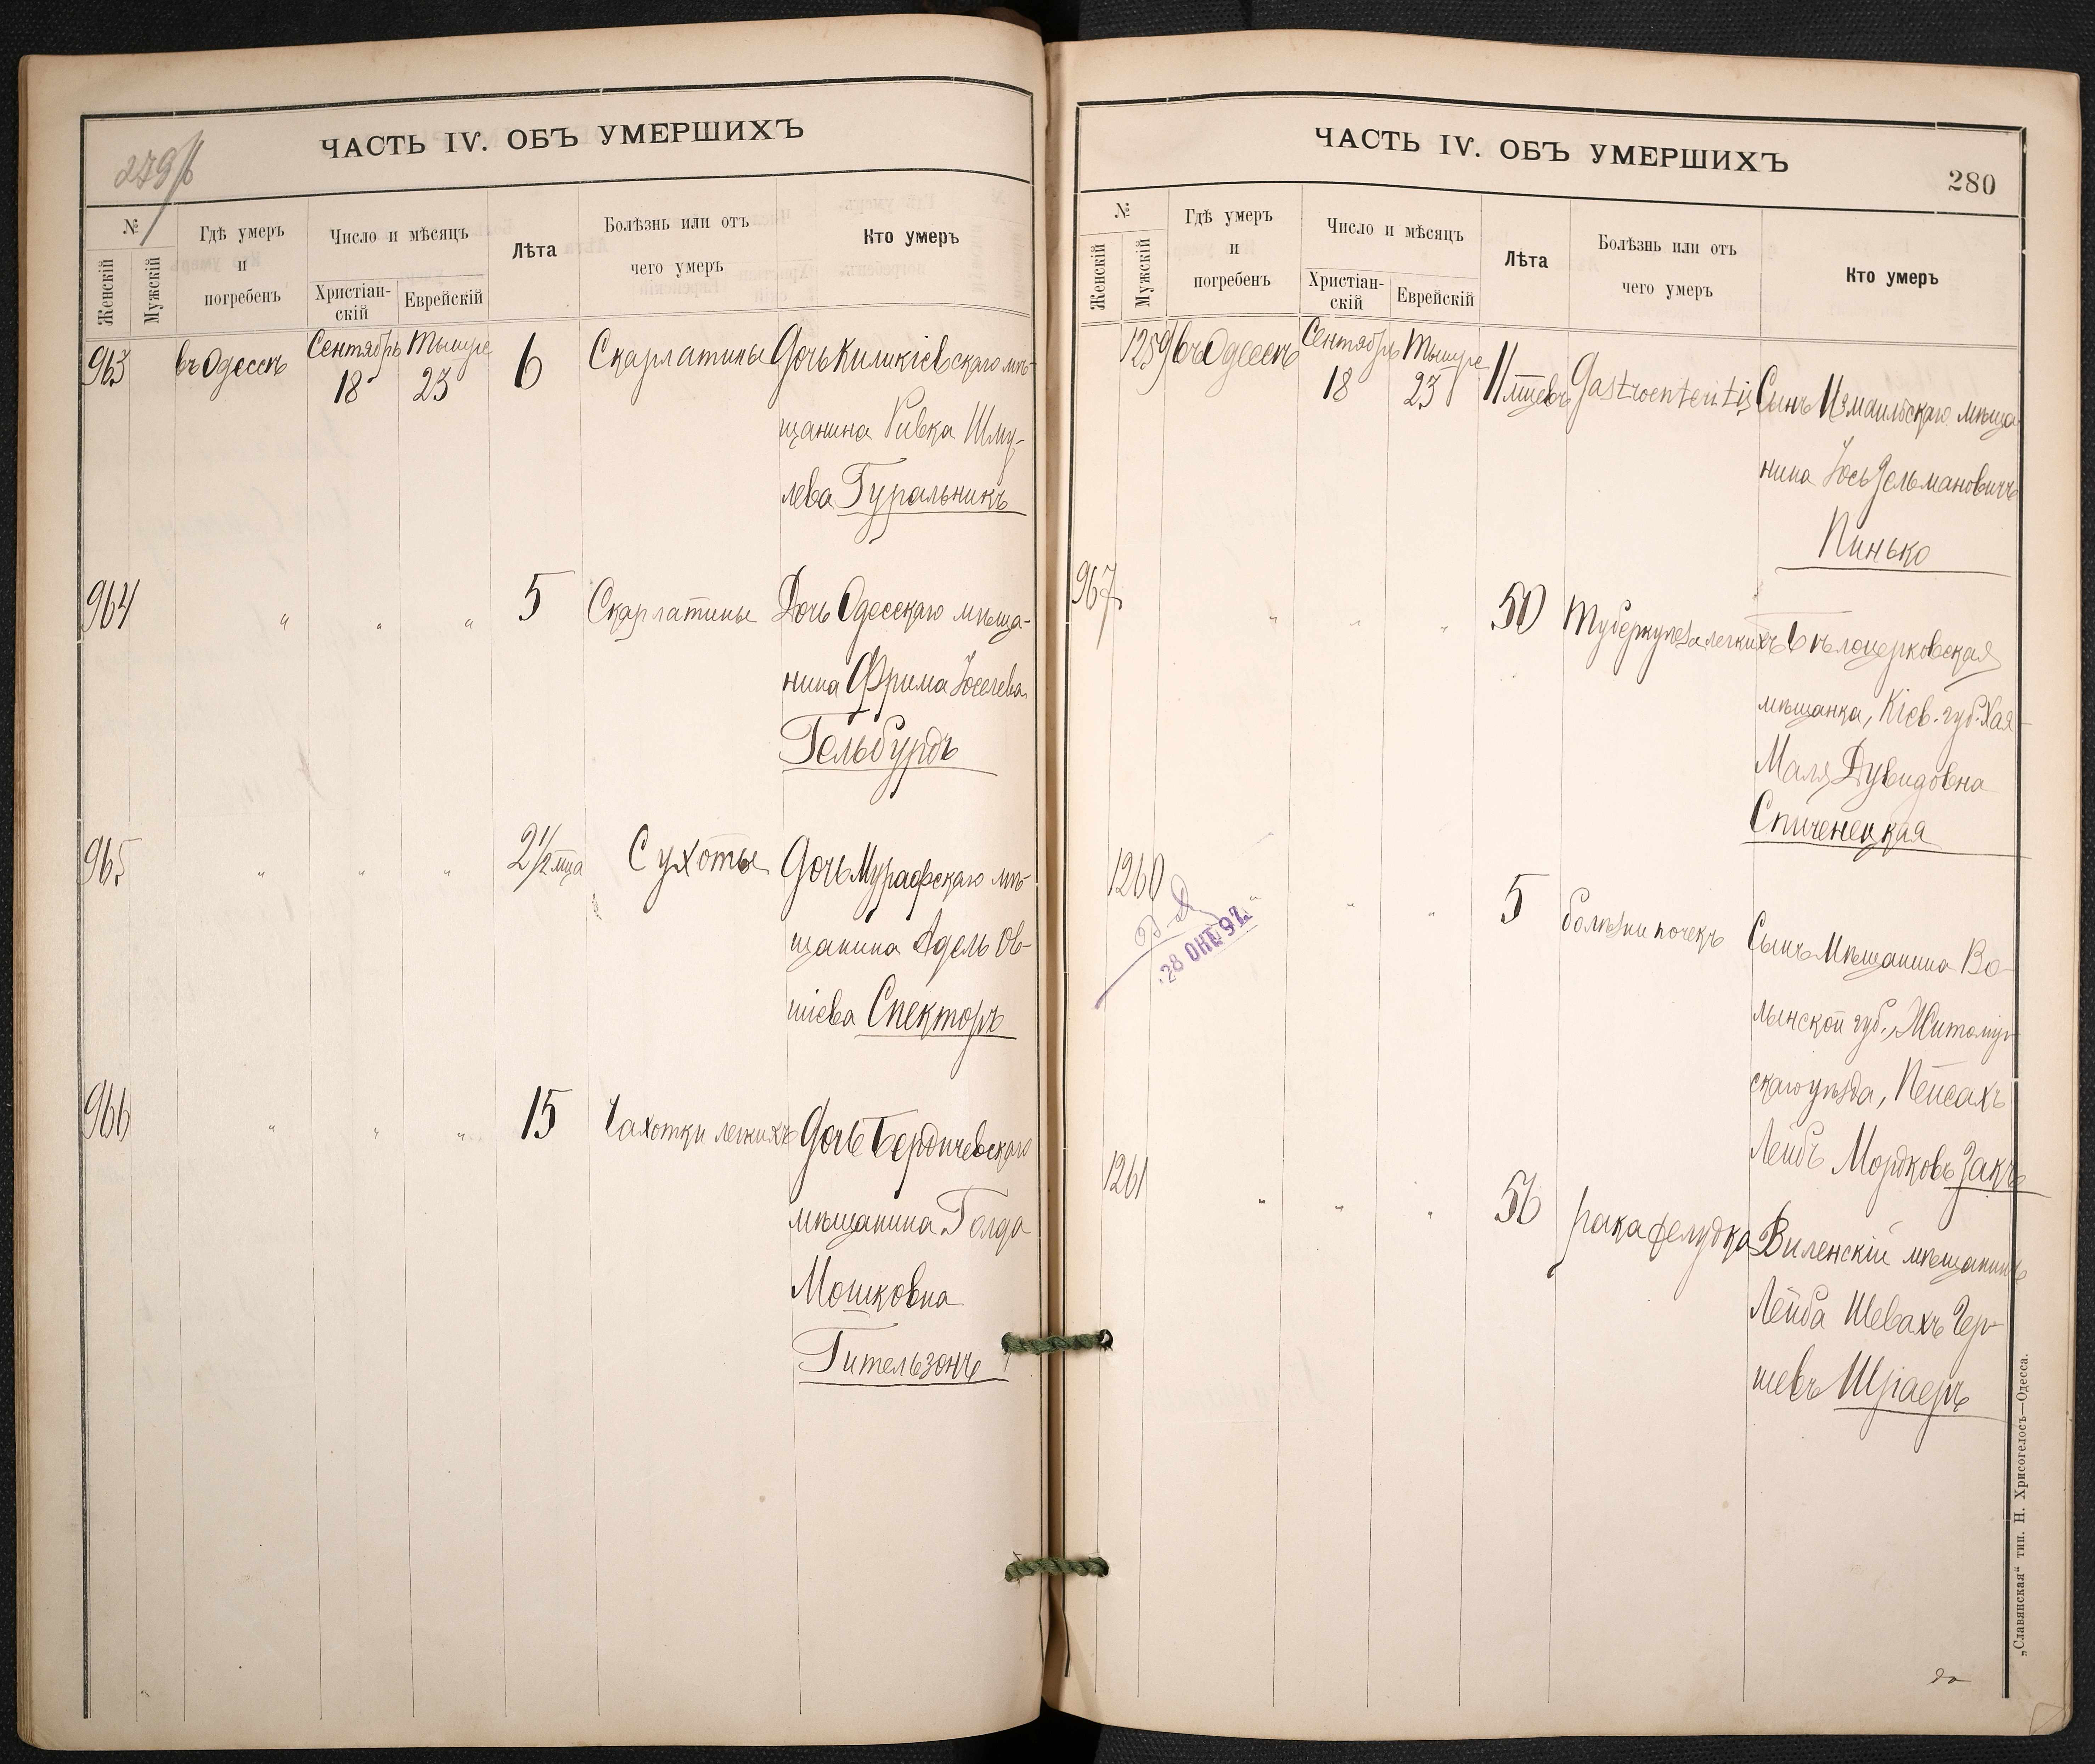 279/б
ЧАСТЬ IV. ОБЪ УМЕРШИХЪ
№
Женскій
Мужскій
Гдѣ умеръ
и
погребенъ
Число и мѣсяцъ
Христіан-
скій
Еврейскій
Лѣта
Болѣзнь или отъ
чего умеръ
Кто умеръ
963 въ Одессѣ Сентябрь Тишре 6 Скарлатины Дочь Киликіевскаго мѣ-
18 23
щанина Ривка Шму-
лева Гуральникъ
964 " " " 5 Скарлатины Дочь Одесскаго мѣща-
нина Фрима Іоселева
Гельбурдъ
965 " " " 2 1/2 мца Сухоты Дочь Мурафскаго мѣ-
щанина Адель Ов-
шіева Спекторъ
966 " " " 15 Чахотки легкихъ Дочь Бердичевскаго
мѣщанина Голда
Мошковна
Гительзонъ
ЧАСТЬ IV. ОБЪ УМЕРШИХЪ
280
№
Женскій
Мужскій
Гдѣ умеръ
и
погребенъ
Число и мѣсяцъ
Христіан-
скій
Еврейскій
Лѣта
Болѣзнь или отъ
чего умеръ
Кто умеръ
1259 въ Одессѣ Сентябрь Тишре 11 мцевъ Gastroenteritis Сынъ Измаильскаго мѣща
18 23
нина Іось Зельмановичъ
Пинько
967 " " " 50 Туберкулеза легкихъ Бѣлоцерковская
мѣщанка, Кіев. губ. Хая-
Маля Дувидовна
Спиченецкая
1260 " " " 5 болѣзни почекъ Сынъ Мѣщанина Во-
28 ОКТ 92
лынской губ., Житомір-
скаго уѣзда, Пейсахъ
Лейбъ Мордковъ Закъ
1261 " " " 56 рака желудка Виленскій мѣщанинъ
Лейба Шевахъ Гер-
шевъ Шраеръ
„Славянская“ тип. Н. Хрисогелосъ—Одесса.